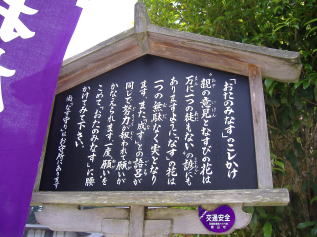 「おたのみなす」こしかけ
「親の意見となすびの花は
万に一つの徒もない」の諺にも
ありますように、なすの花は
一つの無駄なく実となり
ます。また、「成す」との語呂が
同じで努力が報われて願いが
かなえられます。一度、願いを
こめて、「おたのみなす」に腰
かけてみて下さい。
尚、「なす守り」はお守所にあります
交通安全